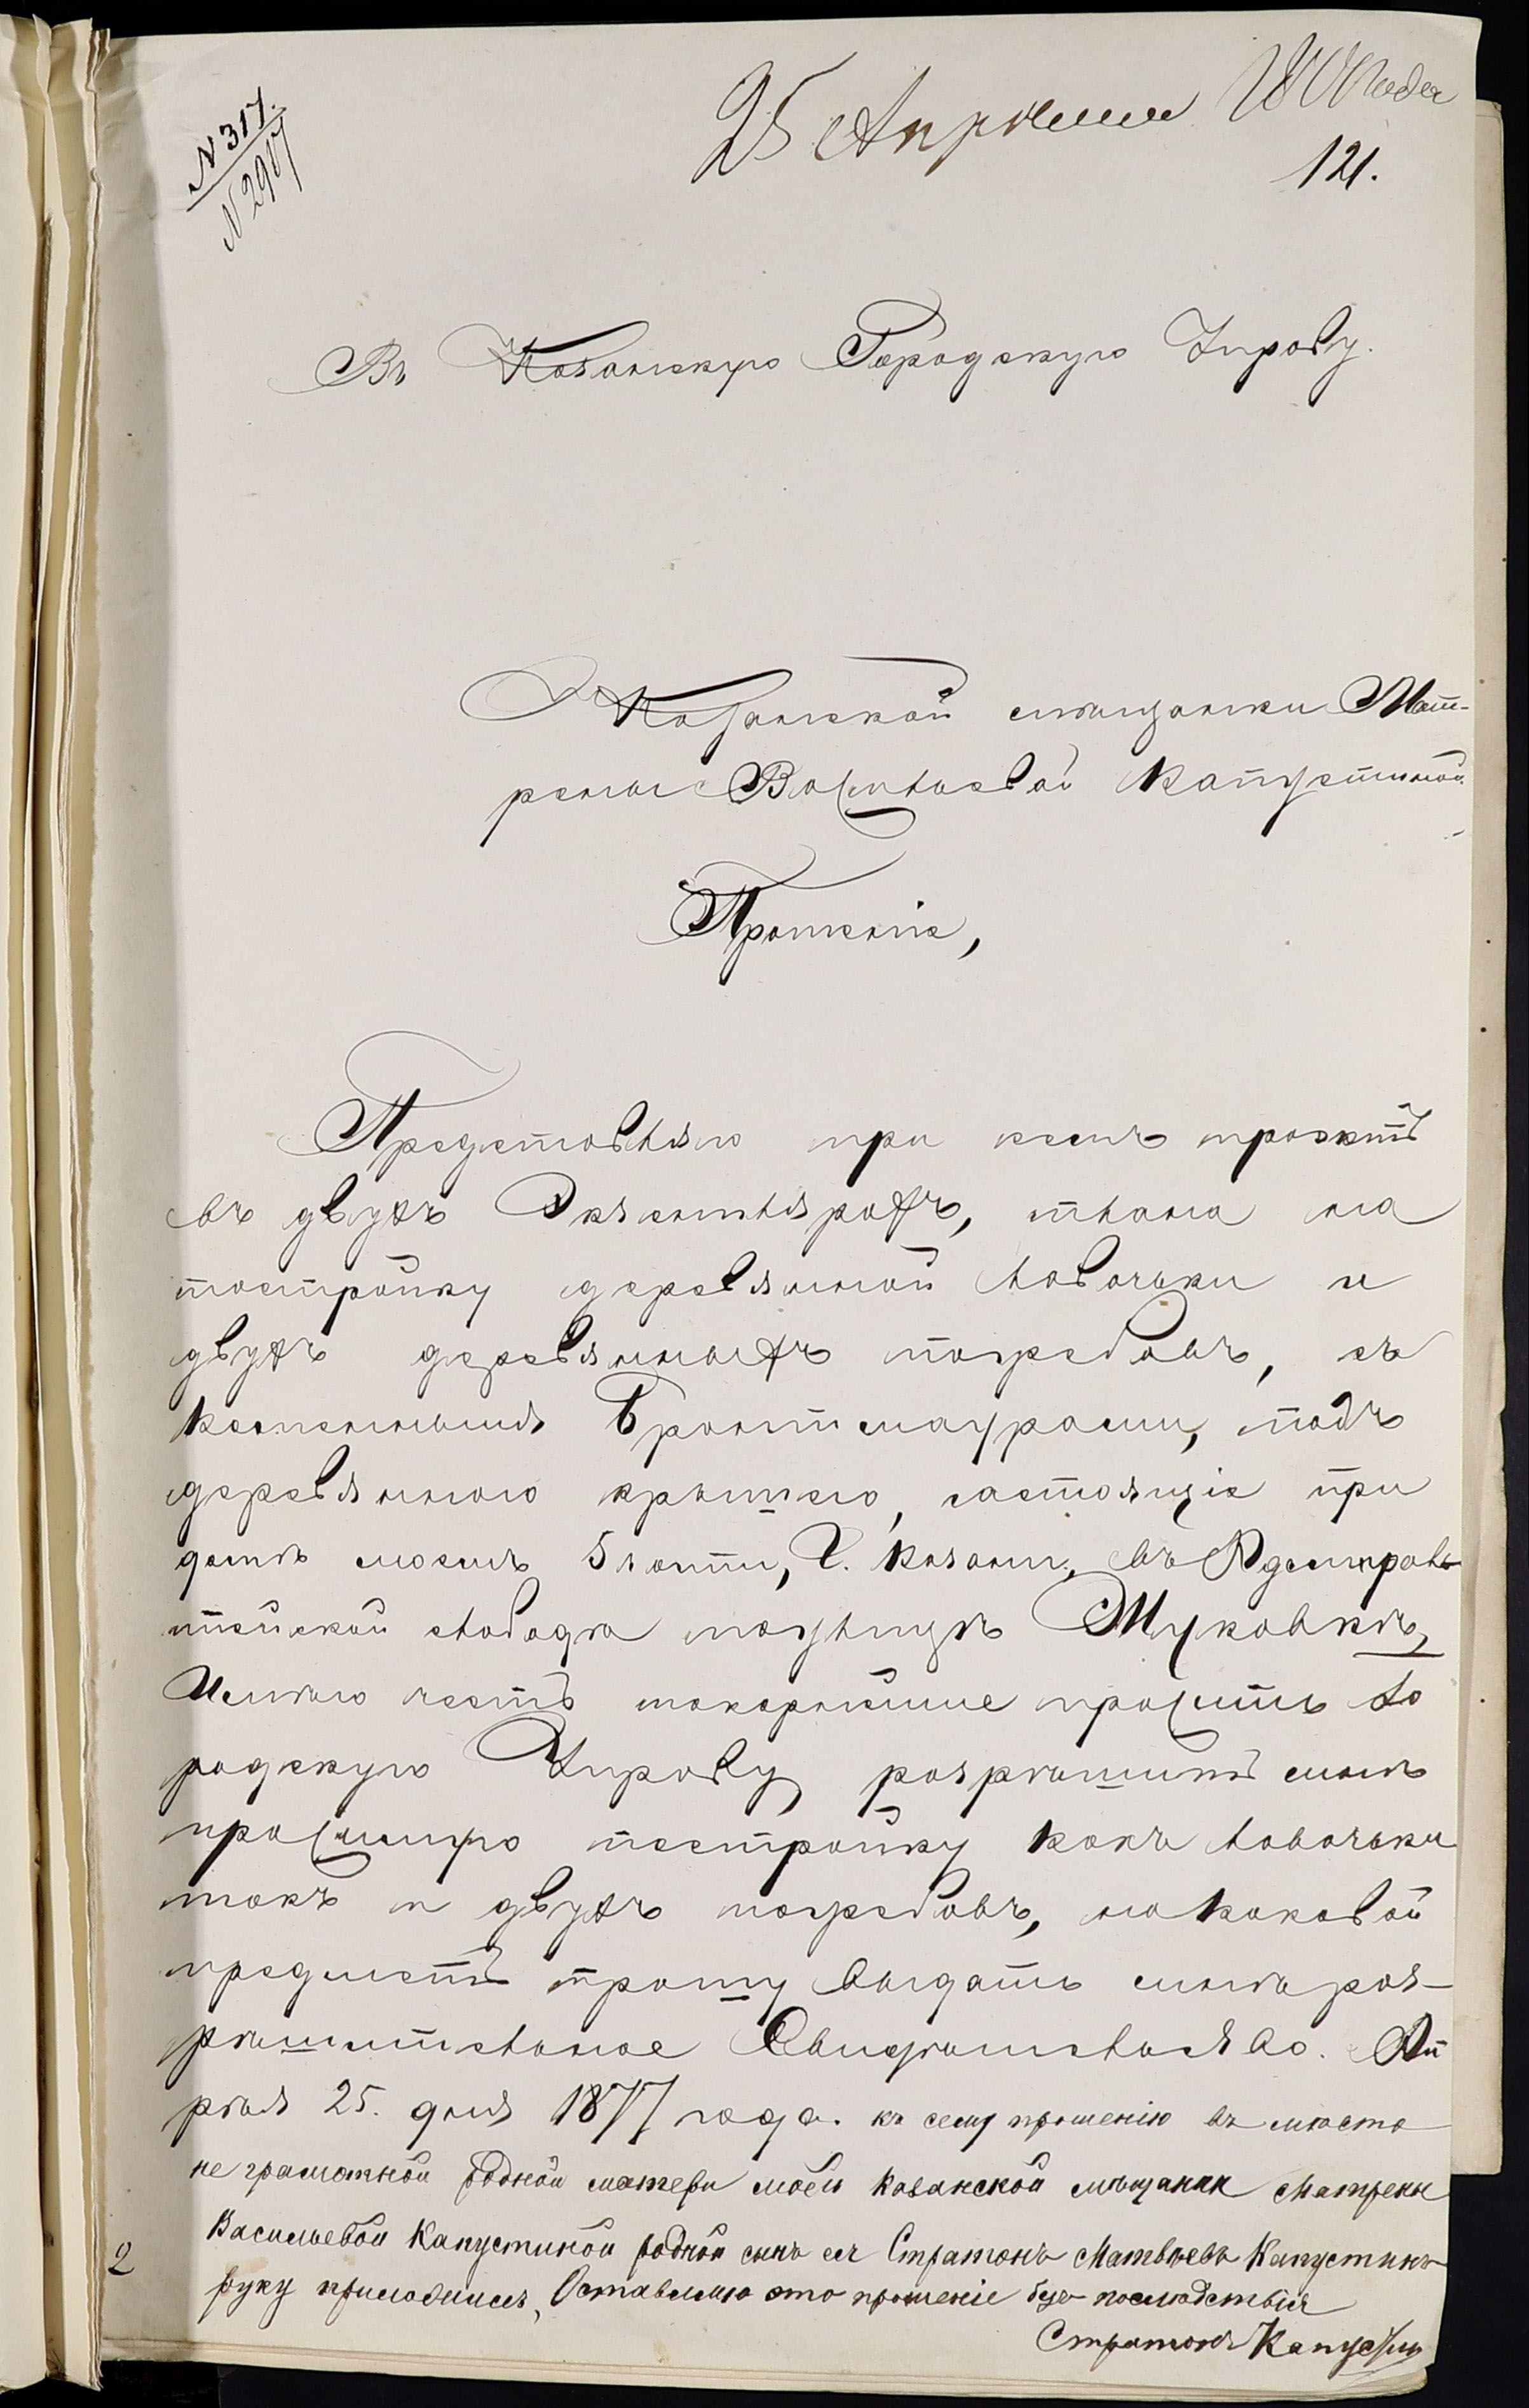 N 317.
N 2907
25 Апрѣля
121.
Въ Казанскую Городскую Управу.
Казанской мѣщанки Мат-
рены Васильевой Капустиной
Прошеніе,
Представляю при семъ проэктъ
въ двухъ Экземплярахъ, плана на
постройку деревяной лавочьки и
двухъ деревянныхъ погребовъ, съ
каменными Брантмаурами, подъ
деревянною крышею, састоящіе при
домѣ моемъ 5 части, Г. Казани, въ Адмирал
тейской слободѣ поулицѣ Жуковкѣ,
Имѣю честь покорнѣйше просить Го
родскую Управу разрѣшить мнѣ
просимую постройку какъ лавочьки
такъ и двухъ погребовъ, на каковой
предметъ прошу выдать мнѣ раз-
рѣшительное Свидѣтельство. Ап
рѣля 25. дня 1877 года. къ сему прошенію въ мюсто
не граматной родной матери моей Казанской мѣщанки Матрены
Васильевой Капустиной родной сынъ ея Стратонъ Матвѣевъ Капустинъ
руку приложилъ, Оставляю это прошеніе безъ послюдствія
Стратонъ Капустинъ
2